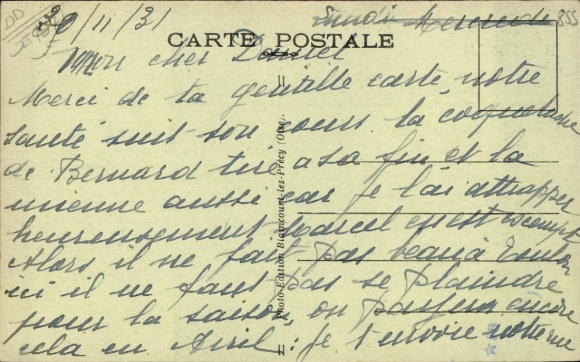 /11/31
Lundi Mercredi
855
CARTE POSTALE
Mon cher Daniel
Merci de ta gentille carte, notre
santé suit son cours la coqueluche
de Bernard tire a sa fin et la
mienne aussi car je l'ai attrapper
heureusement Marcel en est exempt
Alors il ne fait pas beau à
ici il ne faut pas se plaindre
pour la saison, on encore
cela en Avril : je t'envoie notre rue
Photo-Edition Biancourt-les-Précy (Oise)